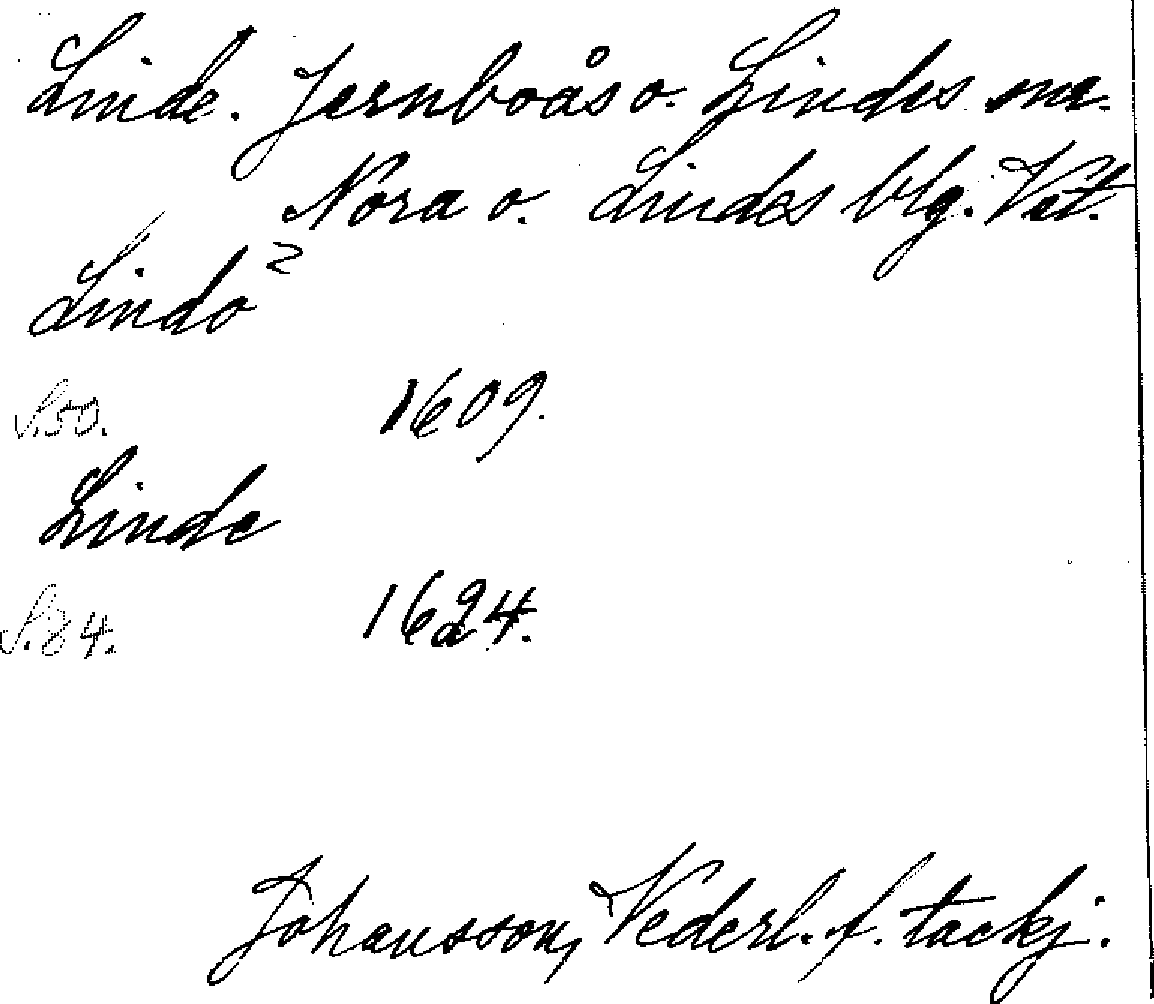 Linde. Jernboås o. Lindes sn.
Nora o. Lindes blg. Vst.
Lindo 2
S. 50. 1609.
Linde
S. 84. 1624.
Johansson, Nederl. f. tackj.